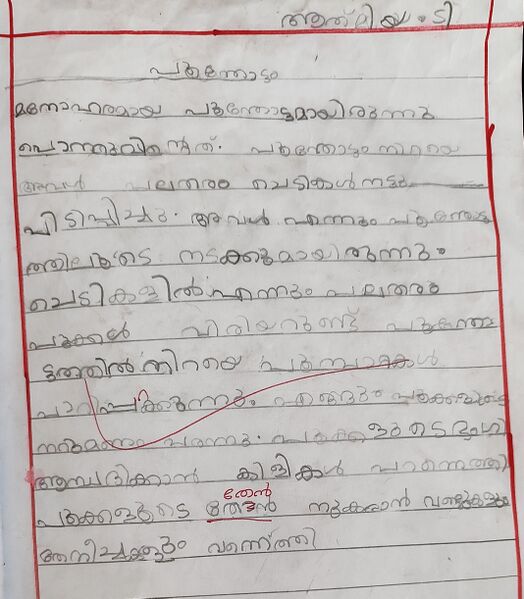 ആത്മിയ . ടി
പൂന്തോട്ടം
മനോഹരമായ പൂന്തോട്ടമായിരുന്നു
പൊന്നുവിന്റേത്. പൂന്തോട്ടം നിറയെ
അവൾ പലതരം ചെടികൾ നട്ടു
പിടിപ്പിച്ചു. അവൾ എന്നും പൂന്തോട്ട
ത്തിലൂടെ നടക്കുമായിരുന്നു.
ചെടികളിൽ എന്നും പലതരം
പൂക്കൾ വിരിയറുണ്ട് പൂന്തോ
ട്ടത്തിൽ നിറയെ പൂമ്പാറ്റകൾ
പാറിപ്പറക്കുന്നു. എങ്ങും പൂക്കളുടെ
നറുമണം പരന്നു. പൂക്കളുടെ ഭംഗി
ആസ്വദിക്കാൻ കിളികൾ പറന്നെത്തി
തേൻ
പൂക്കളുടെ തേൻ നുകരാൻ വണ്ടുകളും
തേനീച്ചകളും വന്നെത്തി